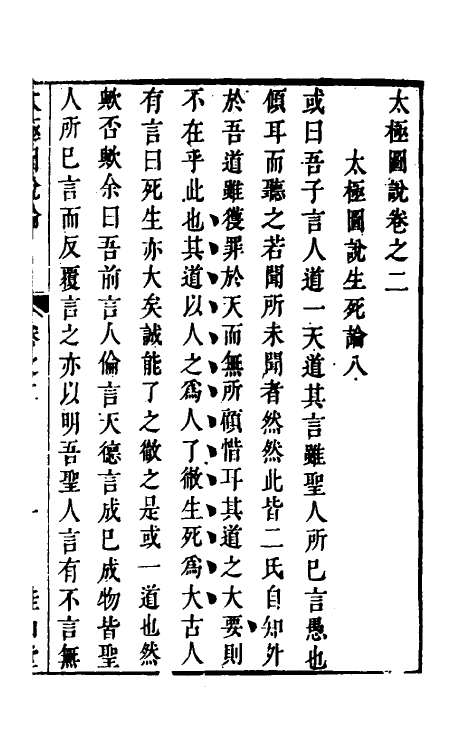 太極圖說卷之二
太極圖說生死論八
或曰吾子言人道一天道其言雖聖人所已言愚也
傾耳而聽之若聞所未聞者然然此皆二氏自知外
於吾道雖獲罪於天而無所顧惜耳其道之大要則
不在乎此也其道以人之爲人了徹生死爲大古人
有言曰死生亦大矣誠能了之徹之是或一道也然
歟否歟余曰吾前言人倫言天德言成己成物皆聖
人所已言而反覆言之亦以明吾聖人言有不言無
太極圖說論
卷之二
一